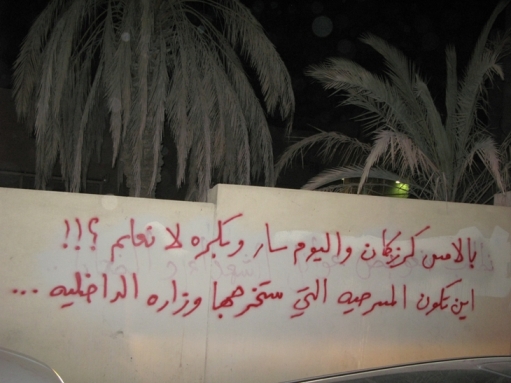 بالامس كرزكان واليوم سار وبكره لا نعلم ؟!!
اين تكون المسرحيه التي ستخرجها وزاره الداخليه ...